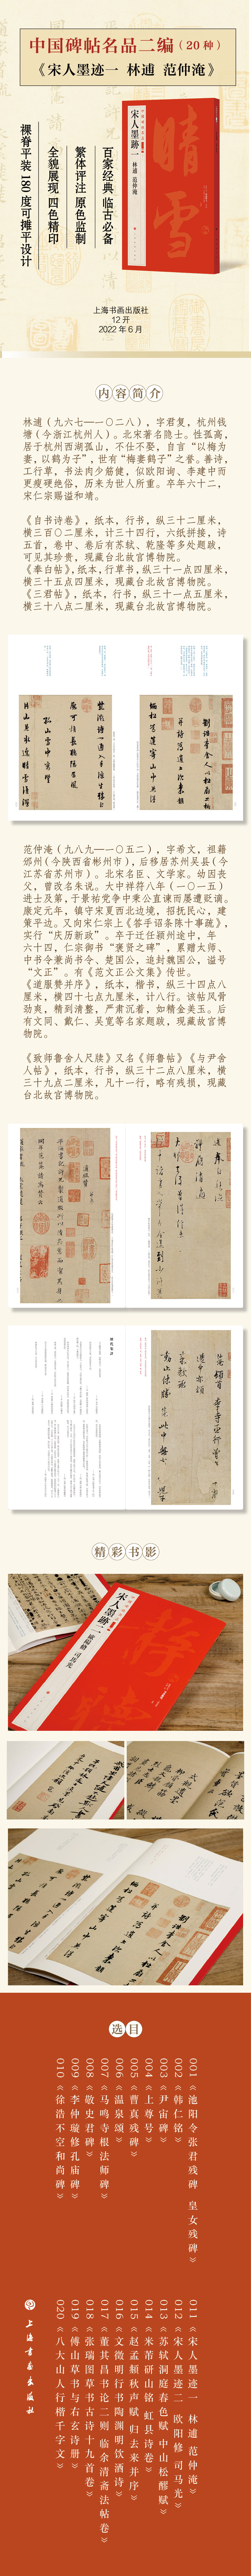 中国碑帖名品二编（20 种）
《宋人墨迹一 林逋 范仲淹》
百家经典 临古必备
繁体评注 原色监制
全貌展现 四色精印
裸脊平装 180 度可摊平设计
宋人墨跡一 林逋 范仲淹
晴雪
上海书画出版社
12 开
2022 年 6 月
内容简介
林逋（九六七—一〇二八），字君复，杭州钱
塘（今浙江杭州人）。北宋著名隐士。性孤高，
居于杭州西湖孤山，不仕不娶，自言“以梅为
妻，以鹤为子”，世有“梅妻鹤子”之誉。善诗，
工行草，书法肉少筋健，似欧阳询、李建中而
更瘦硬绝俗，历来为世人所重。卒年六十二，
宋仁宗赐谥和靖。
《自书诗卷》，纸本，行书，纵三十二厘米，
横三百〇二厘米，计三十四行，六纸拼接，诗
五首，卷中、卷后有苏轼、乾隆等多处题跋，
可见其珍贵，现藏台北故宫博物院。
《奉白帖》，纸本，行草书，纵三十一点四厘米，
横三十五点四厘米，现藏台北故宫博物院。
《三君帖》，纸本，行书，纵三十一点五厘米，
横三十八点二厘米，现藏台北故宫博物院。
范仲淹（九八九—一〇五二），字希文，祖籍
邠州（今陕西省彬州市），后移居苏州吴县（今
江苏省苏州市）。北宋名臣、文学家。幼因丧
父，曾改名朱说。大中祥符八年（一〇一五）
进士及第，于景祐党争中秉公直谏而屡遭贬谪。
康定元年，镇守宋夏西北边境，招抚民心，建
策平边。又向宋仁宗上《答手诏条陈十事疏》，
实行“庆历新政”。卒于迁任颍州途中，年
六十四，仁宗御书“褒贤之碑”，累赠太师、
中书令兼尚书令、楚国公，追封魏国公，谥号
“文正”。有《范文正公文集》传世。
《道服赞并序》，纸本，楷书，纵三十四点八
厘米，横四十七点九厘米，计八行。该帖风骨
劲爽，精到清整，严肃沉着，如精金美玉。后
有文同、戴仁、吴宽等名家题跋，现藏故宫博
物院。
《致师鲁舍人尺牍》又名《师鲁帖》《与尹舍
人帖》，纸本，行书，纵三十二点八厘米，横
三十九点二厘米，凡十一行，略有残损，现藏
台北故宫博物院。
精彩书影
宋人墨跡二 歐陽修 司馬光
选目
001《池阳令张君残碑 皇女残碑》
002《韩仁铭》
003《尹宙碑》
004《上尊号》
005《曹真残碑》
006《温泉颂》
007《马鸣寺根法师碑》
008《敬史君碑》
009《李仲璇修孔庙碑》
010《徐浩不空和尚碑》
011《宋人墨迹一 林逋 范仲淹》
012《宋人墨迹二 欧阳修 司马光》
013《苏轼洞庭春色赋 中山松醪赋》
014《米芾研山铭 虹县诗卷》
015《赵孟頫秋声赋 归去来并序》
016《文徵明行书陶渊明饮酒诗》
017《董其昌书论二则 临余清斋法帖卷》
018《张瑞图草书古诗十九首卷》
019《傅山草书与右玄诗册》
020《八大山人行楷千字文》
上海书画出版社